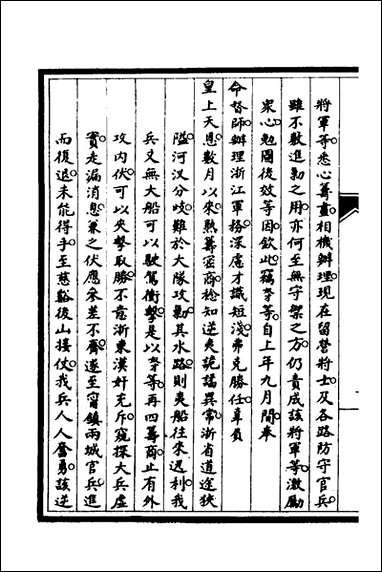 將軍等悉心籌畫相機辦理現在留營將士及各路防守官兵
雖不敷進剿之用亦何至無守禦之方仍責成該將軍等激勵
衆心勉圖後效等因欽此竊奴才等自上年九月間奉
命督師辦理浙江軍務深慮才識短淺弗克勝任辜負
皇上天恩數月以來熟籌密商稔知逆夷詭譎異常浙省道途狹
隘河汊分歧難於大隊攻剿其水路則夷船往來迅利我
兵又無大船可以駛駕衝擊是以奴才等再四籌商止有外
攻内伏可以夾擊取勝不意浙東漢奸充斥窺探大兵虛
實走漏消息兼之伏應參差不齊遂至甯鎮兩城官兵進
而復退未能得手至慈谿後山接仗我兵人人奮勇該逆